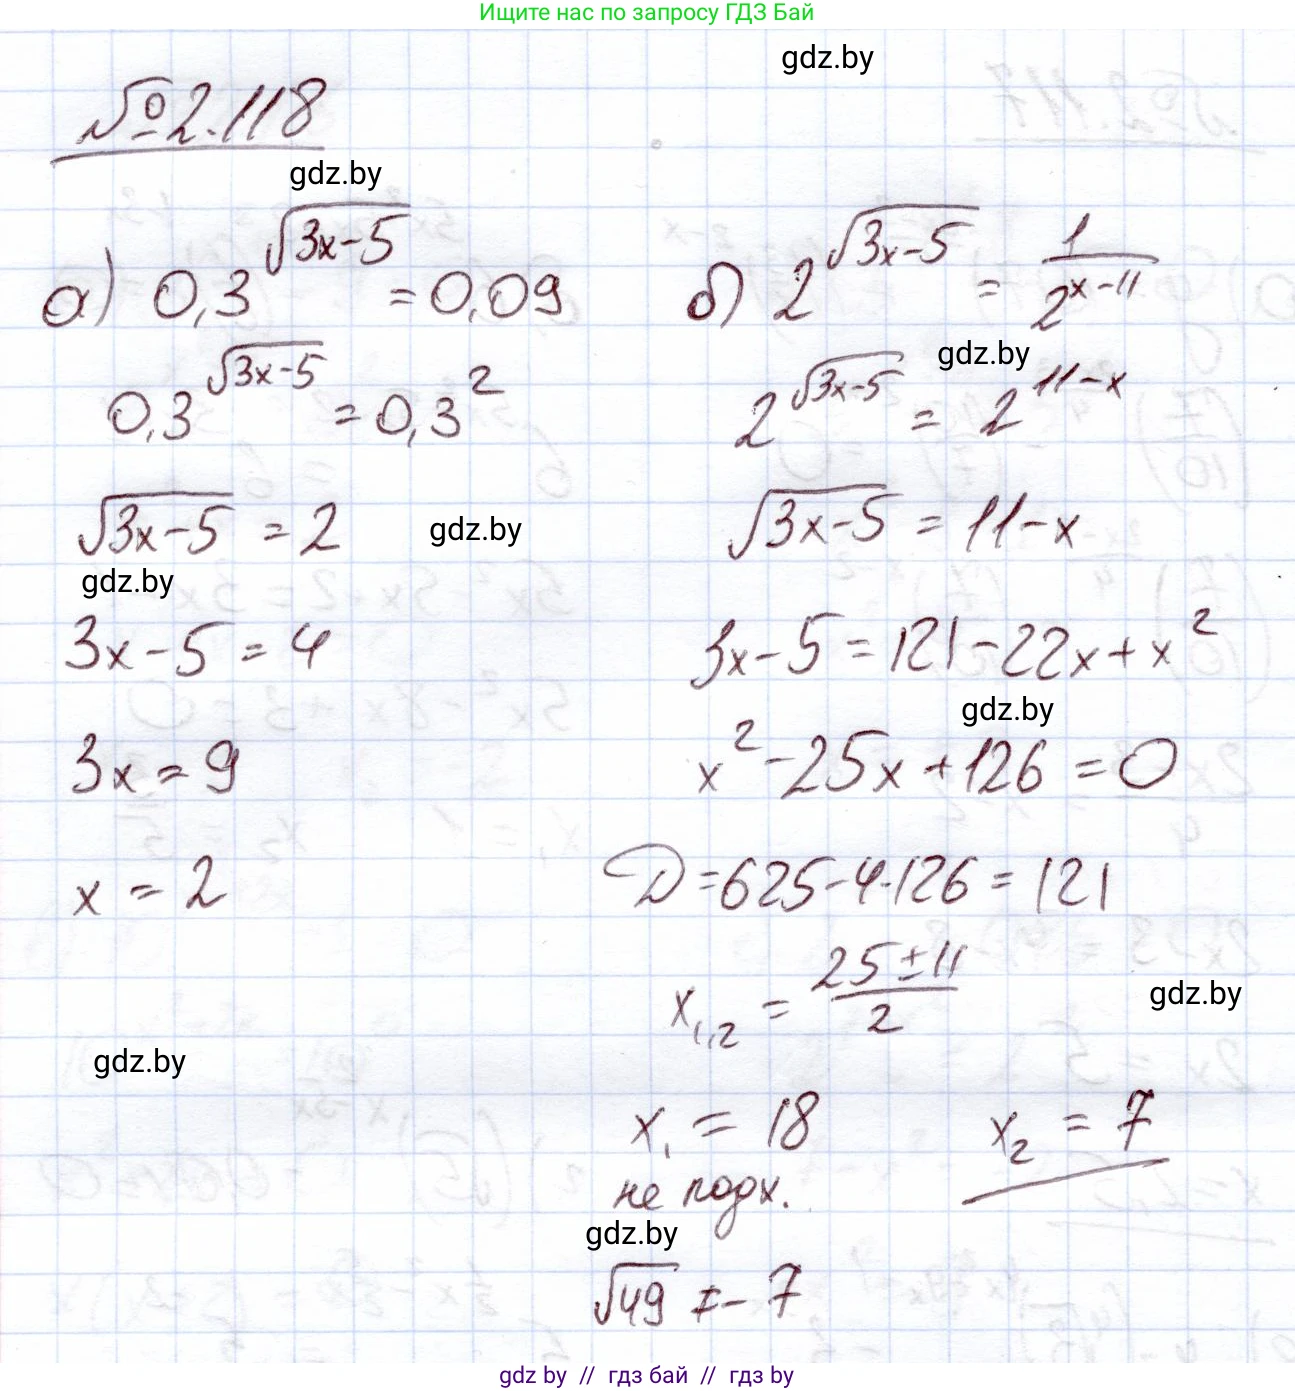 Ищите нас по запросу ГДЗ Бай
gdz.by
№2.118
gdz.by
а) 0,3^√(3x-5) = 0,09
0,3^√(3x-5) = 0,3²
√(3x-5) = 2
gdz.by
gdz.by
3x-5 = 4
3x = 9
x = 2
gdz.by
б) 2^√(3x-5) = 1/2^(x-11)
gdz.by
2^√(3x-5) = 2^(11-x)
√(3x-5) = 11-x
3x-5 = 121-22x+x²
gdz.by
x²-25x+126 = 0
D = 625-4·126 = 121
x₁,₂ = (25±11)/2
gdz.by
x₁ = 18 x₂ = 7
не подх.
gdz.by
√49 ≠ -7
gdz.by // гдз бай // гдз.by